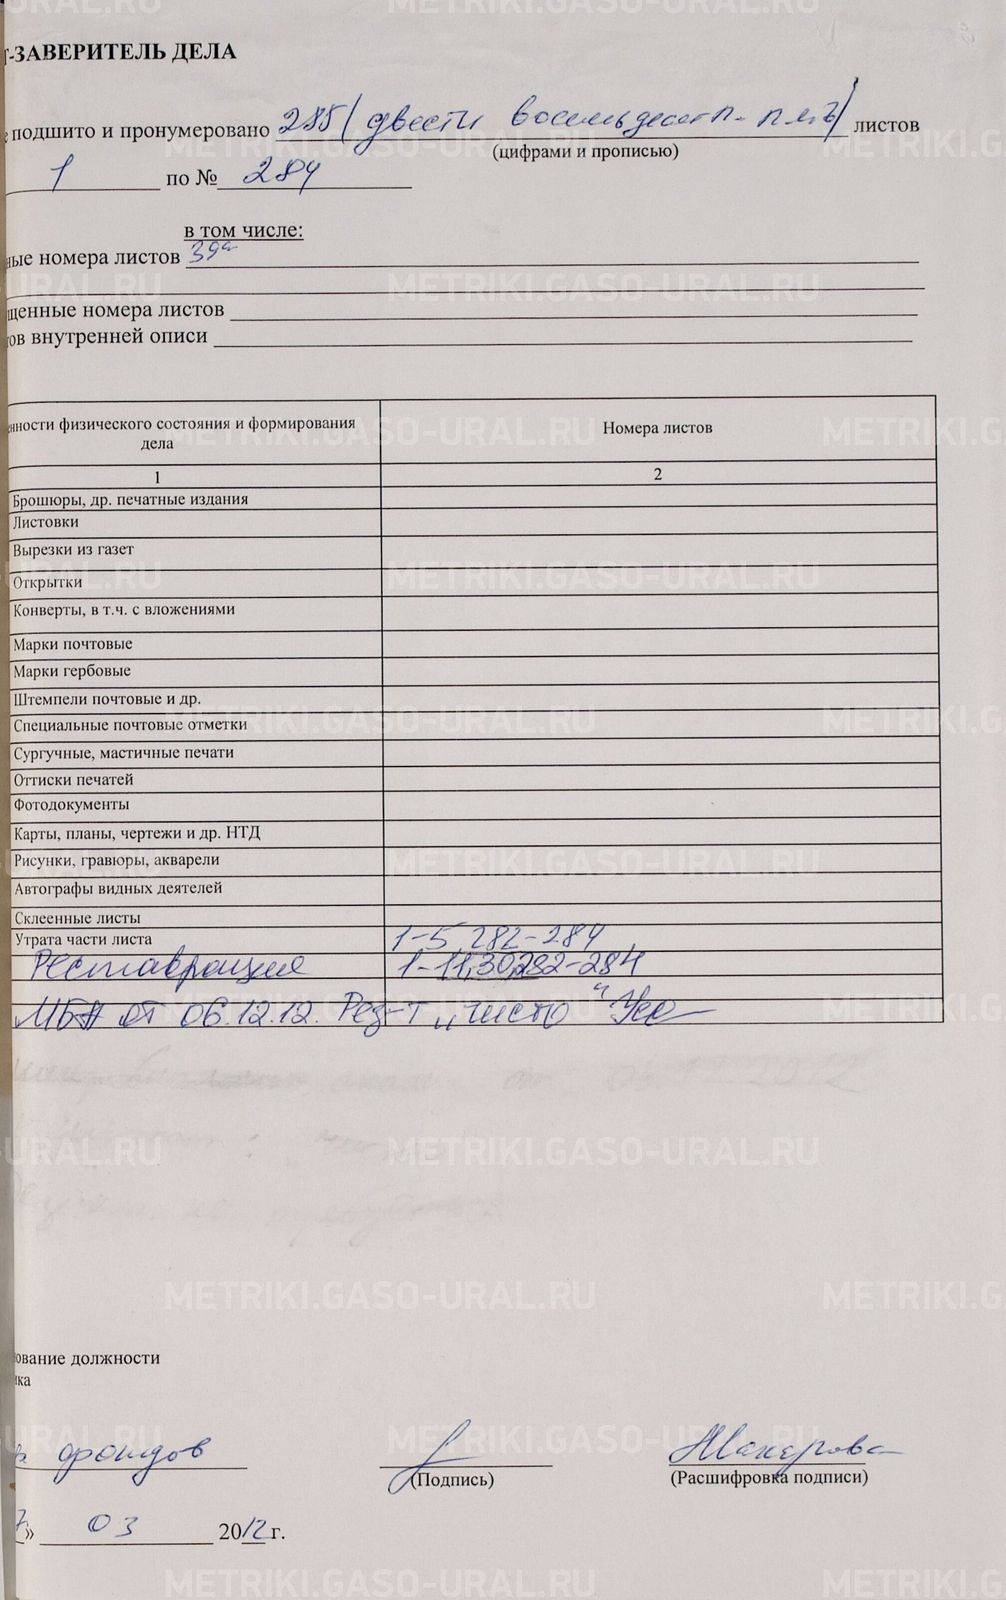 Т-ЗАВЕРИТЕЛЬ ДЕЛА
подшито и пронумеровано 285 (двести восемьдесят п. пять) листов
(цифрами и прописью)
1 по № 284
в том числе:
ные номера листов 39а
щенные номера листов
ов внутренней описи
нности физического состояния и формирования дела Номера листов
1 2
Брошюры, др. печатные издания
Листовки
Вырезки из газет
Открытки
Конверты, в т.ч. с вложениями
Марки почтовые
Марки гербовые
Штемпели почтовые и др.
Специальные почтовые отметки
Сургучные, мастичные печати
Оттиски печатей
Фотодокументы
Карты, планы, чертежи и др. НТД
Рисунки, гравюры, акварели
Автографы видных деятелей
Склеенные листы
Утрата части листа 1-5, 282-284
Реставрация 1-11,30,282-284
от 06.12.12. Рез-т „чисто"
ование должности
ика
фондов
(Подпись) (Расшифровка подписи)
7» 03 2012 г.
METRIKI.GASO-URAL.RU